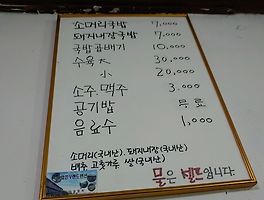 소머리국밥 7,000
돼지내장국밥 7,000
국밥곱배기 10,000
수육 大 30,000
小 20,000
소주.맥주 3,000
공기밥 무료
음료수 1,000
소머리(국내산).돼지내장(국내산)
배추 고춧가루 쌀(국내산)
물은 셀프입니다.